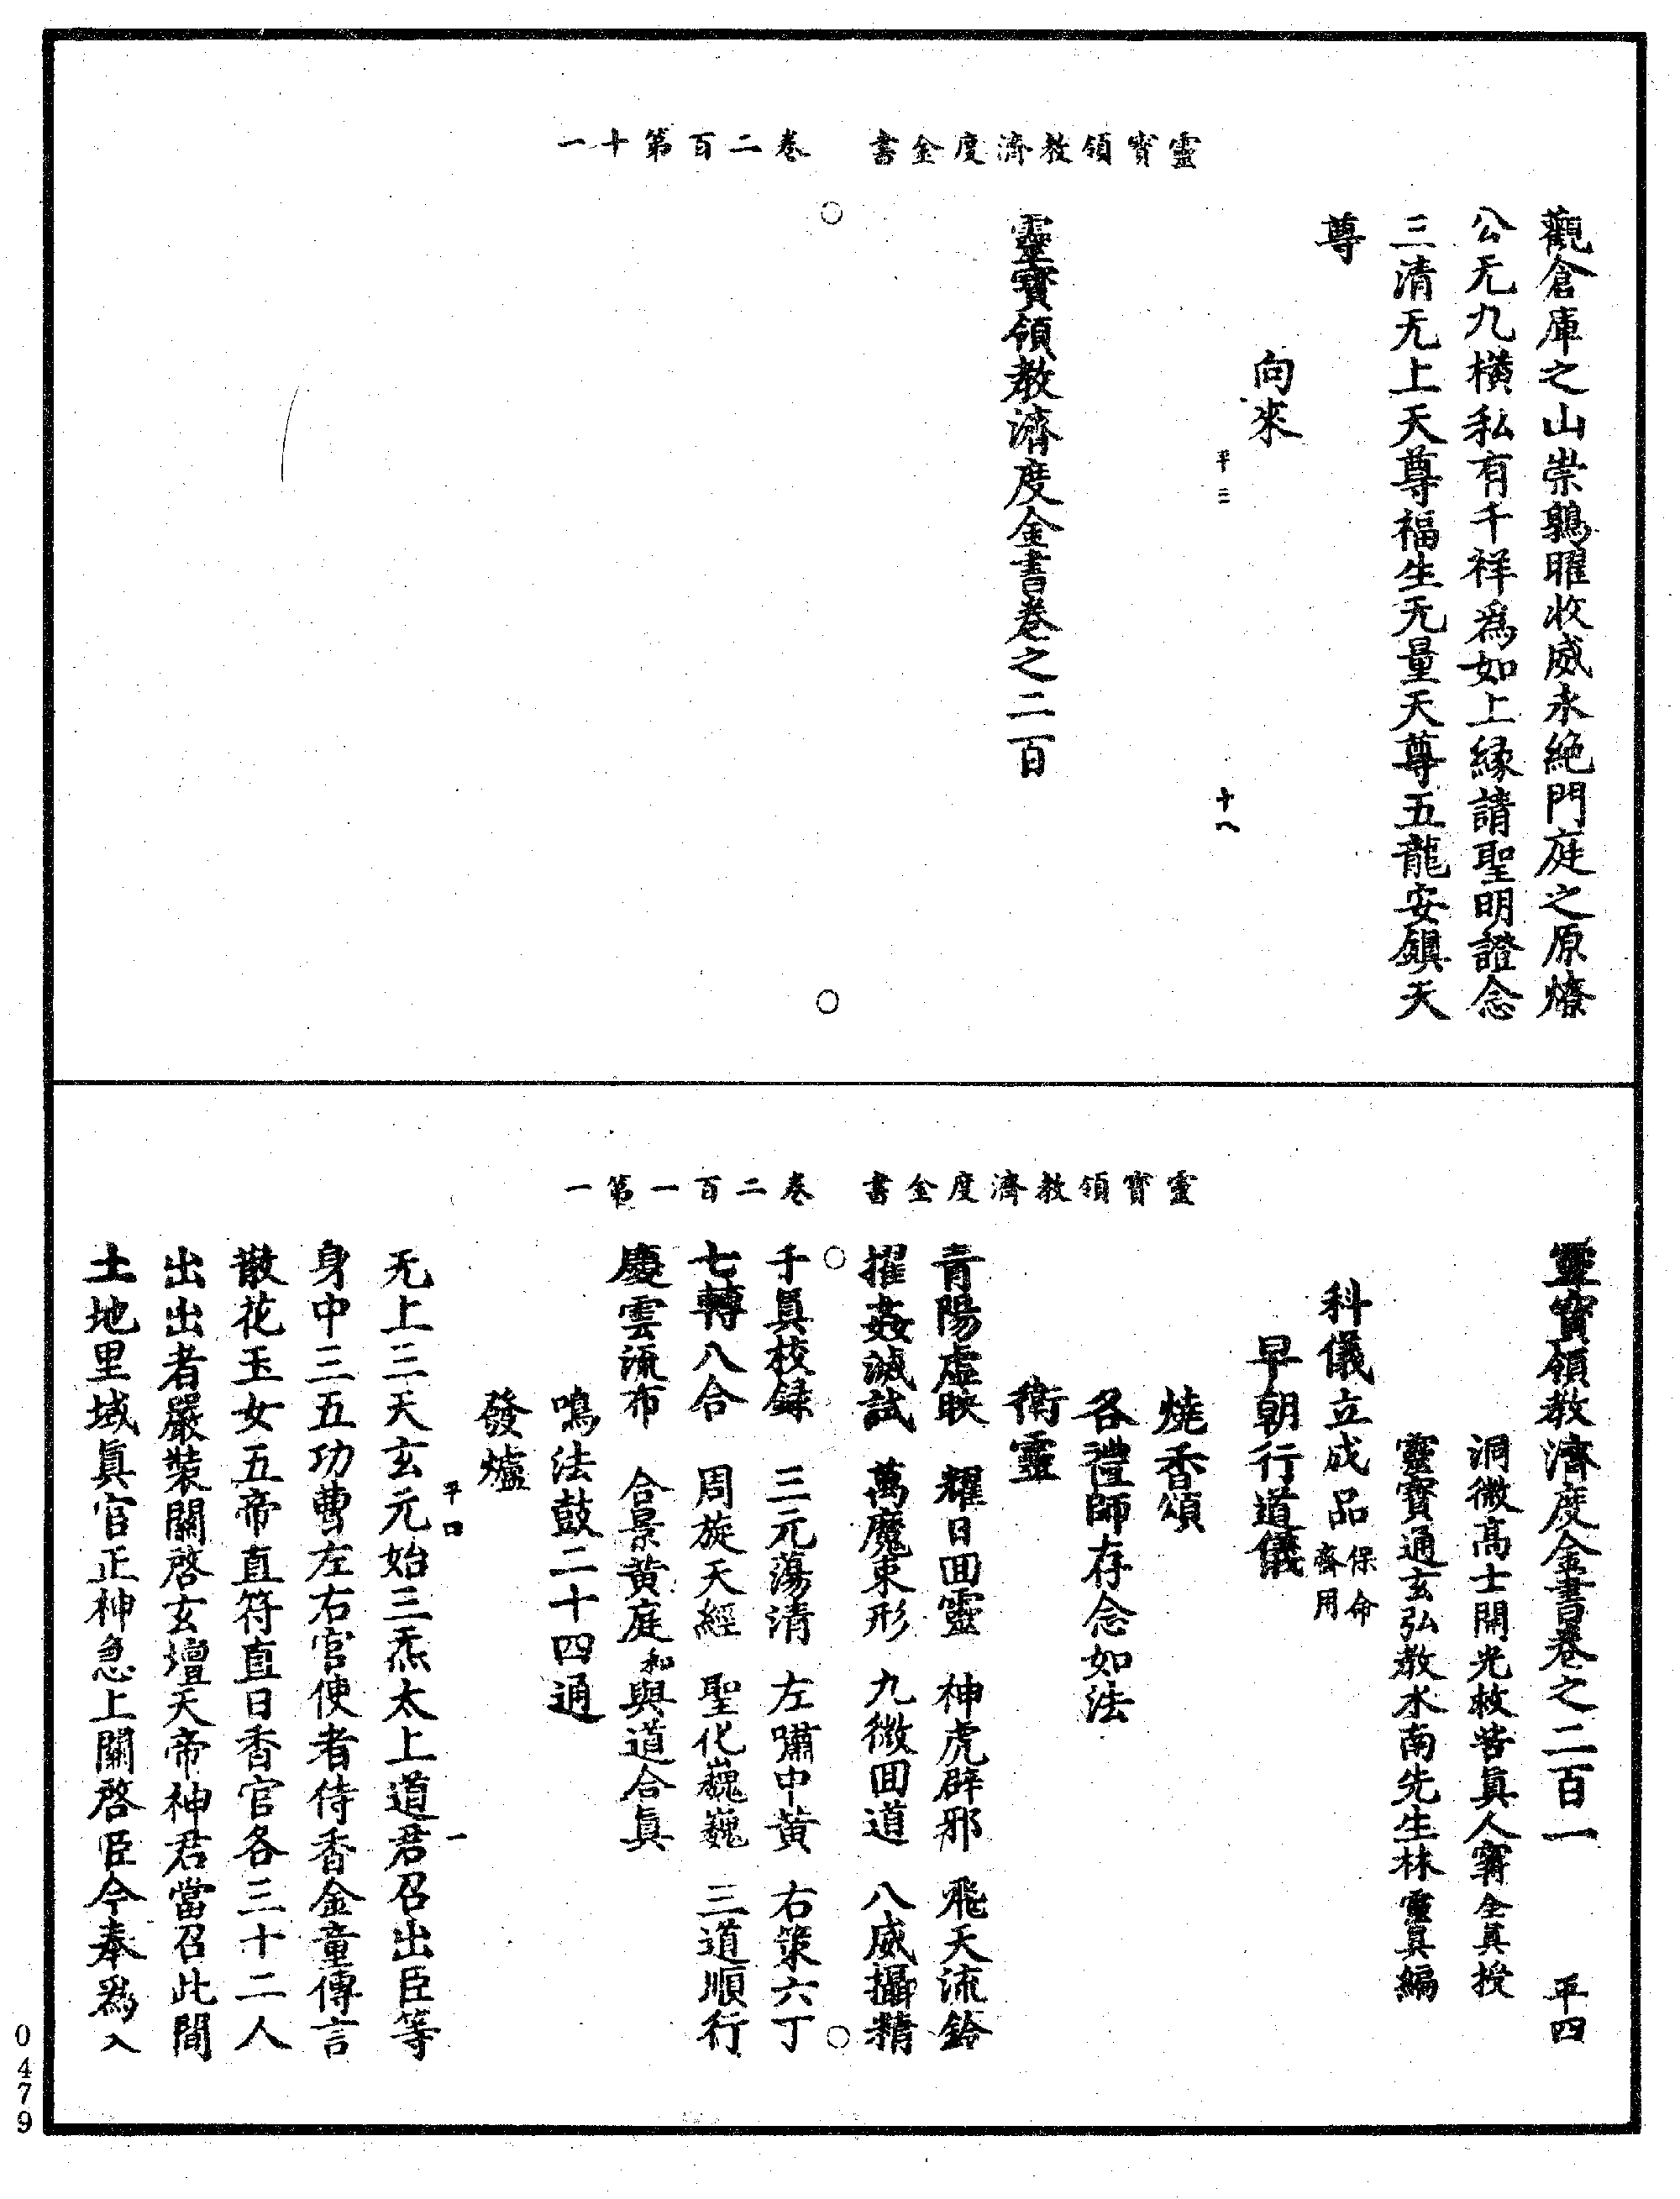 靈寶領教濟度金書　卷二百第十一
觀倉庫之山崇鶉曜收威永絕門庭之原燎
公无九橫私有千祥為如上緣請聖明證念
三清无上天尊福生无量天尊五龍安鎮天
尊
向來
平三　十八
靈寶領教濟度金書卷之二百
靈寶領教濟度金書　卷二百一第一
靈寶領教濟度金書卷之二百一　平四
洞微高士開光救苦真人甯全真授
靈寶通玄弘教水南先生林靈真編
科儀立成品保命齋用
早朝行道儀
燒香頌
各禮師存念如法
衛靈
青陽虛映　耀日回靈　神虎辟邪　飛天流鈴
摧姦滅試　萬魔束形　九微回道　八威攝精
千真校錄　三元蕩清　左嘯中黃　右策六丁
七轉八合　周旋天經　聖化巍巍　三道順行
慶雲流布　合景黃庭和與道合真
鳴法鼓二十四通
發爐
平四　一
无上三天玄元始三炁太上道君召出臣等
身中三五功曹左右官使者侍香金童傳言
散花玉女五帝直符直日香官各三十二人
出出者嚴裝關啓玄壇天帝神君當召此間
土地里域真官正神急上關啓臣今奉為入
0479